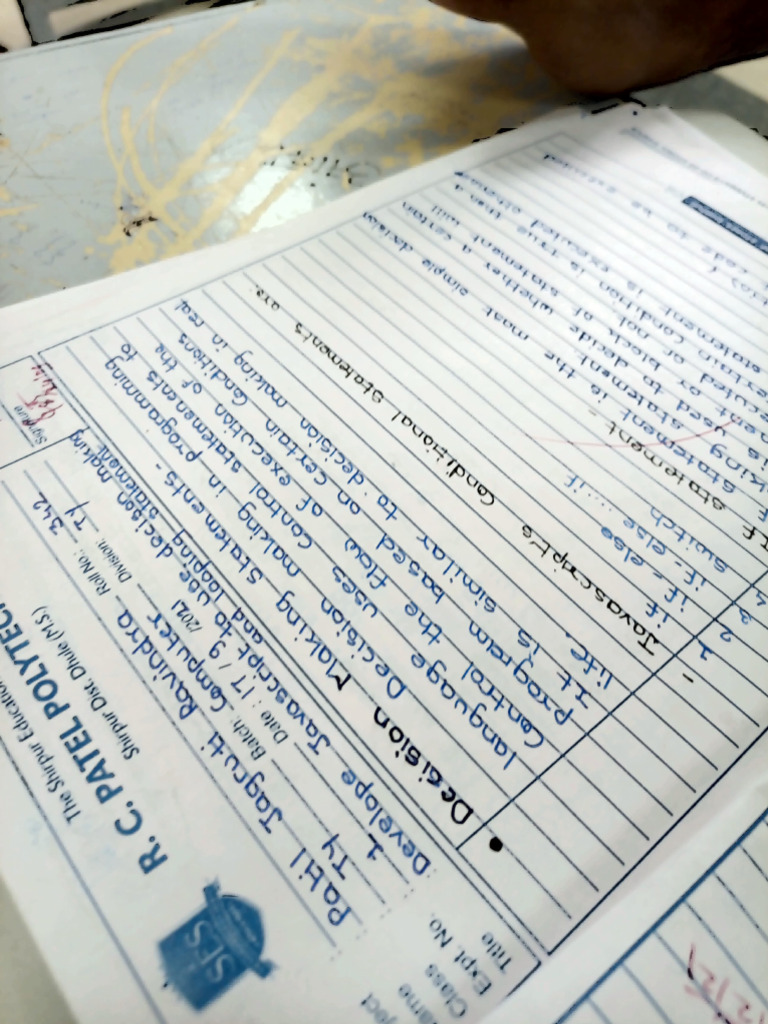 SES
The Shirpur Education
R. C. PATEL POLYTEC
Shirpur Dist. Dhule (M.S.)
ame : Patil Jagruti Ravindra Roll No.: 342
Class : TY Batch: Computer Division: TY
Expt. No. : 1 Date : 17 / 9 /2021
Title : Develope Javascript to use decison making
and looping statement
Signature
• Desision Making statements-
Decision making in programming
language uses control statements to
Control the flow of execution of the
program based on certain Conditions
It is similar to decision making in real
life.
- Javascript's Conditional statements are:
1 if
2 if - else
3 if - else .... if
switch
If statement -
king statement is the most simple decision
is used to decide whether a certain
statement or block of statement will
cuted or not
condition is true then a
statement is executed otherwise
code to be